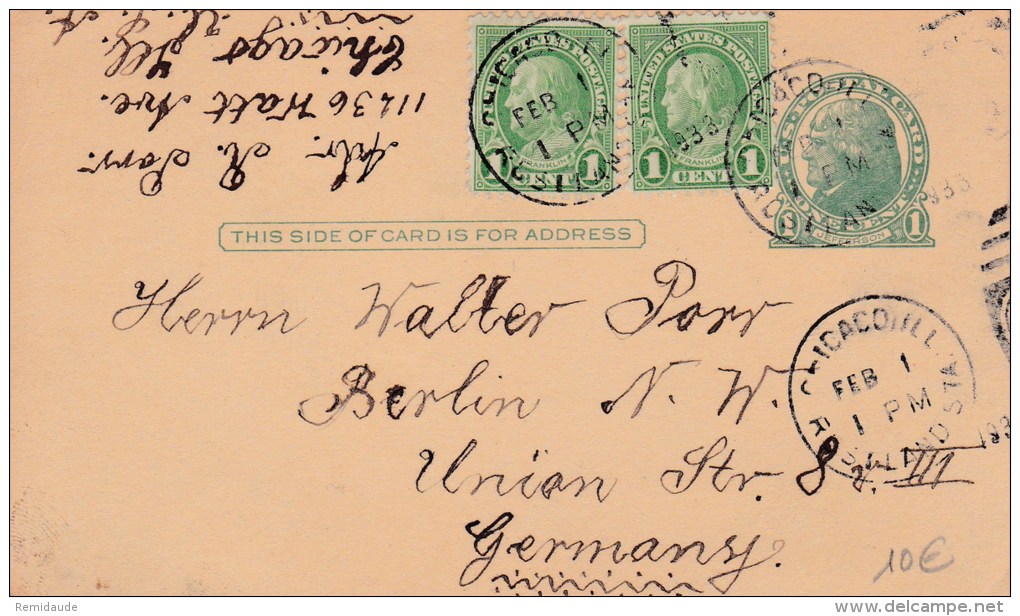 Adr. R. Porr.
11436 Watt Ave.
Chicago Ill.
U. S. A.
UNITED STATES POSTAGE
FRANKLIN
1 CENT 1
UNITED STATES POSTAGE
FRANKLIN
1 CENT 1
CHICAGO, ILL.
FEB 1
1 PM
ROSELAND STA.
1933
U.S. POSTAL CARD
JEFFERSON
1 ONE CENT 1
CHICAGO, ILL.
1 PM
ROSELAND STA.
1933
THIS SIDE OF CARD IS FOR ADDRESS
Herrn Walter Porr
Berlin N. W.
Union Str. 8 v. III
Germany.
CHICAGO, ILL.
FEB 1
1 PM
ROSELAND STA.
193
10€
Remidaude
www.delcampe.net